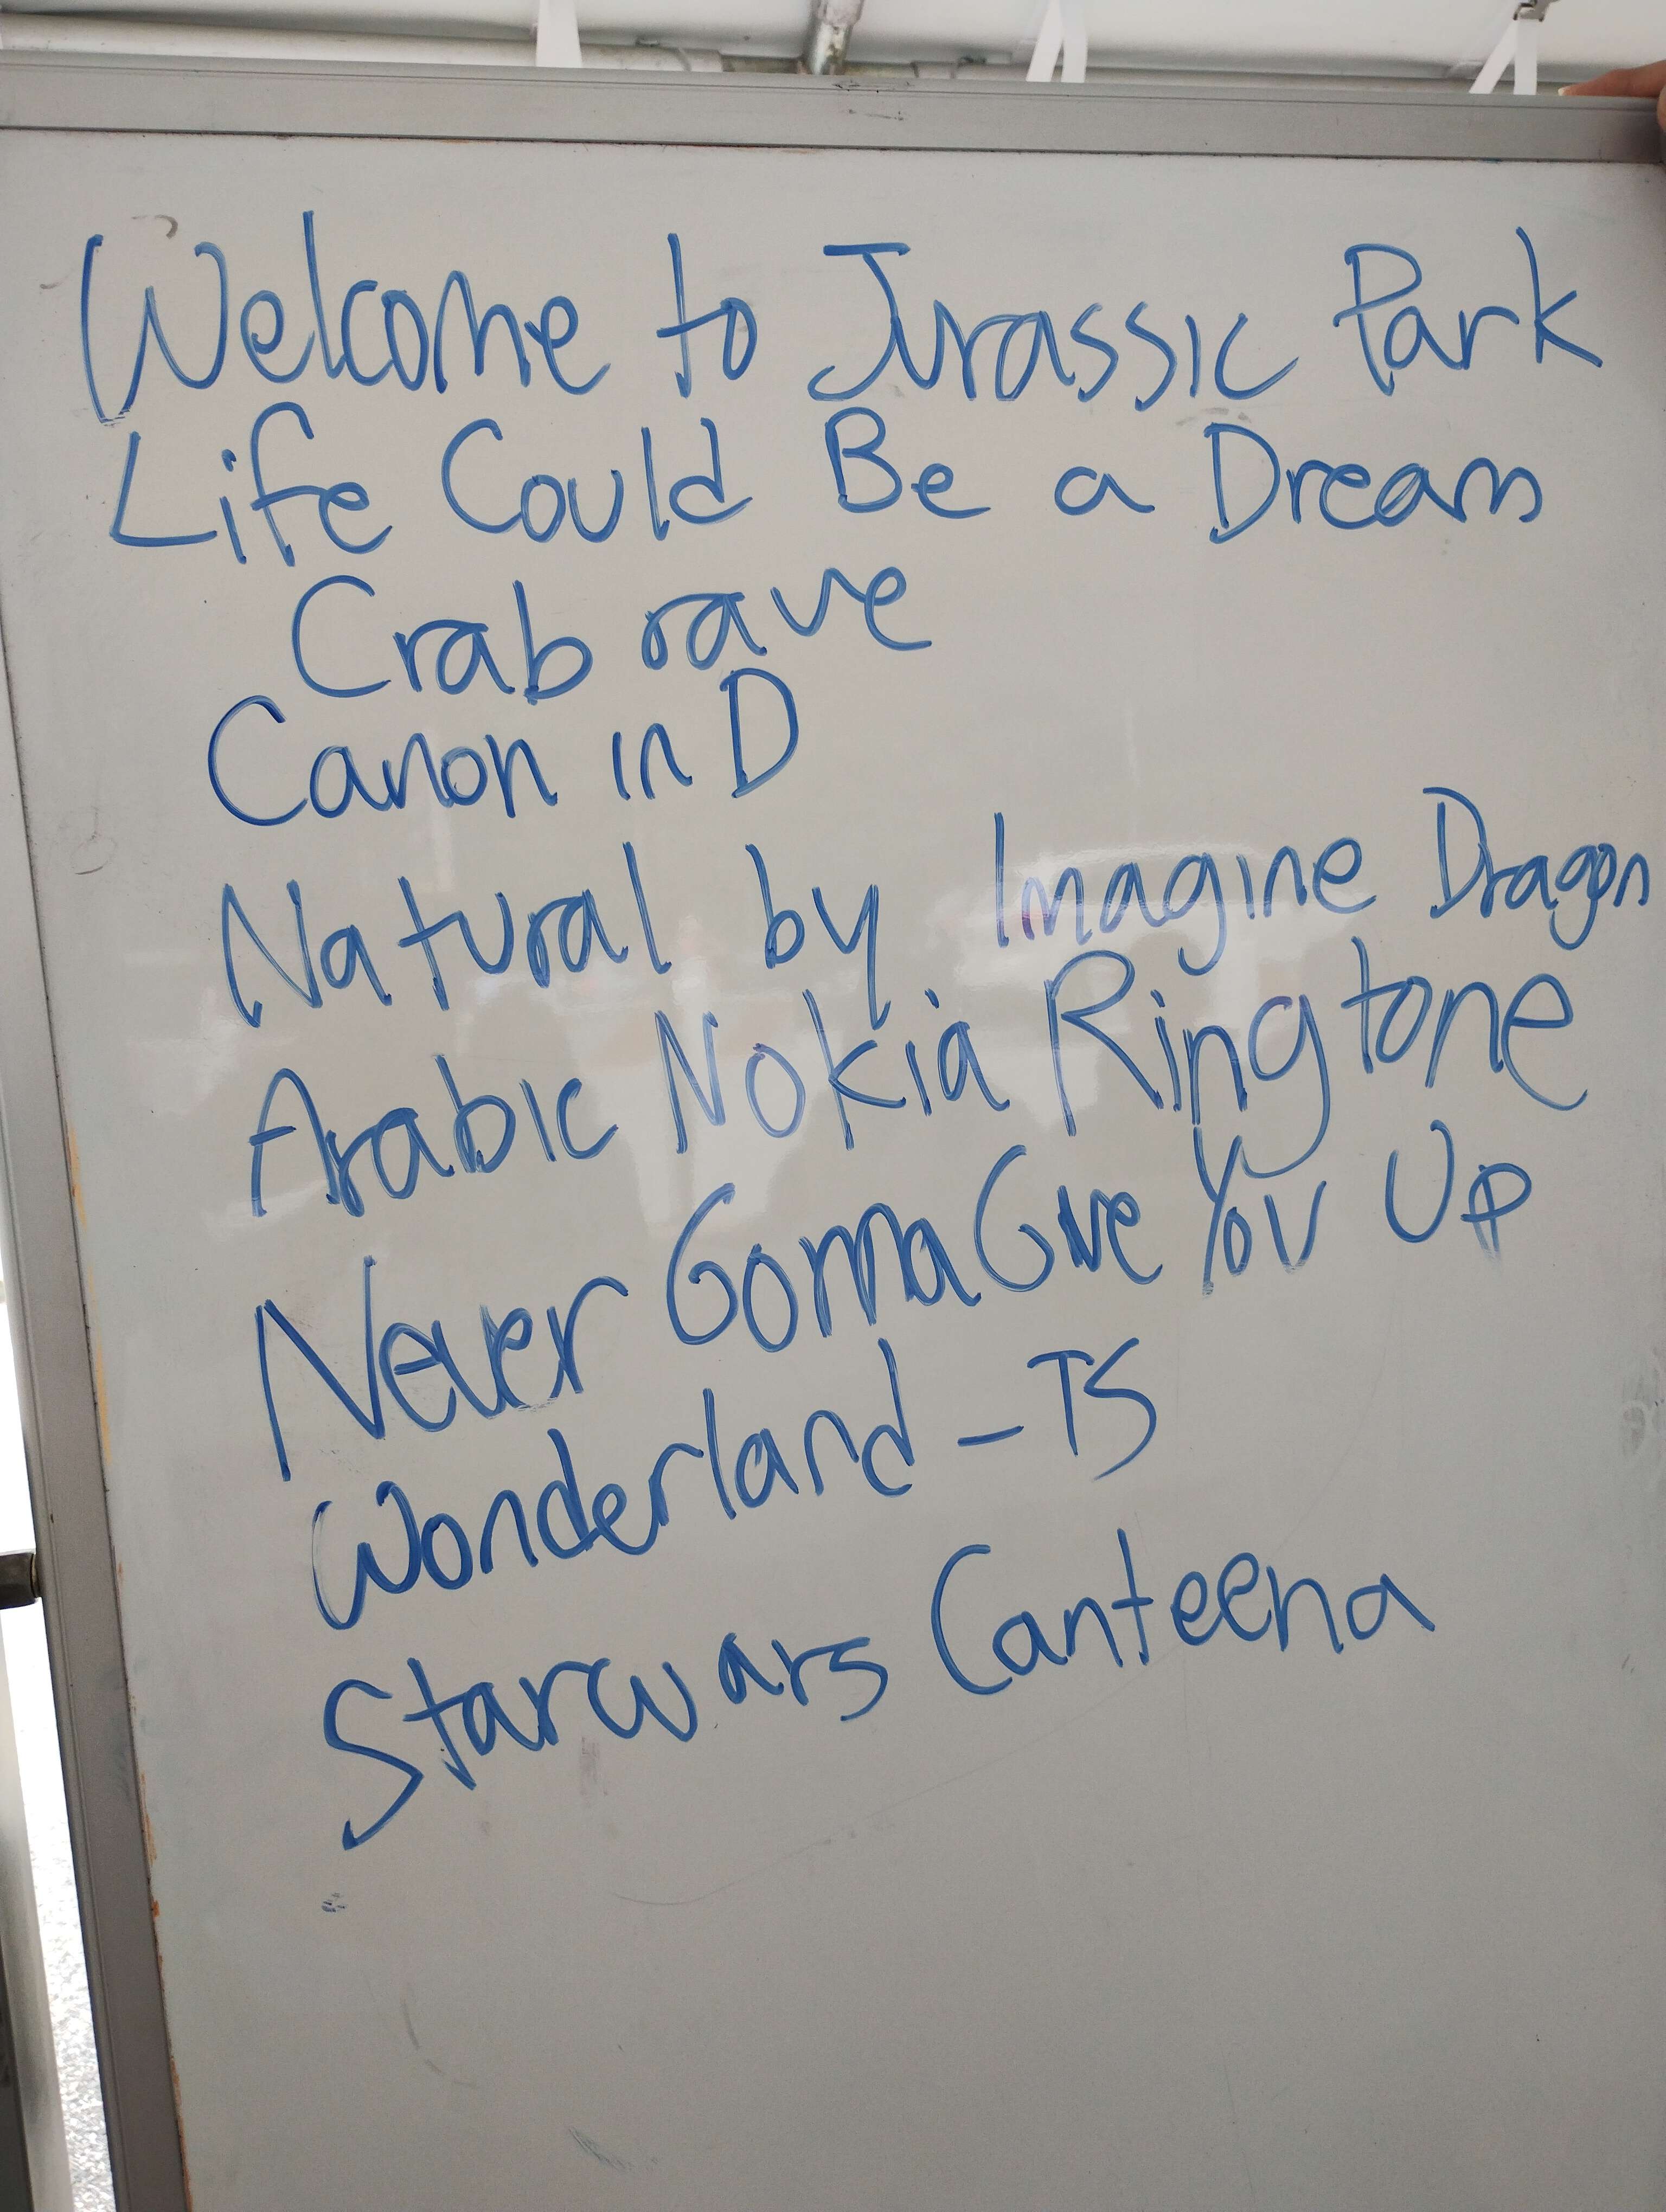 Welcome to Jurassic Park
Life Could Be a Dream
Crab rave
Canon in D
Natural by Imagine Dragon
Arabic Nokia Ringtone
Never Gonna Give You Up
Wonderland - TS
Starwars Canteena